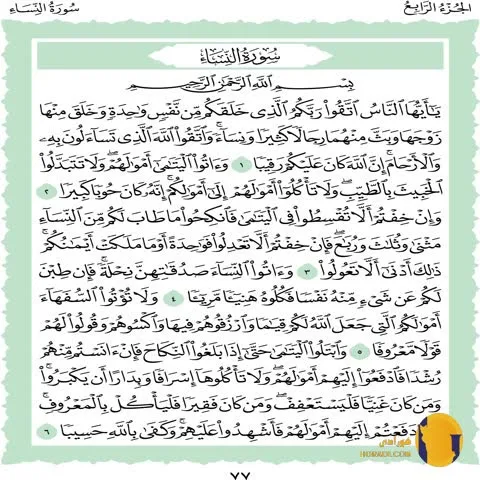 الجزء الرابع
سورة النساء
سورة النساء
بسم الله الرحمن الرحيم
يَٰٓأَيُّهَا ٱلنَّاسُ ٱتَّقُوا۟ رَبَّكُمُ ٱلَّذِى خَلَقَكُم مِّن نَّفْسٍ وَٰحِدَةٍ وَخَلَقَ مِنْهَا
زَوْجَهَا وَبَثَّ مِنْهُمَا رِجَالًا كَثِيرًا وَنِسَآءً ۚ وَٱتَّقُوا۟ ٱللَّهَ ٱلَّذِى تَسَآءَلُونَ بِهِۦ
وَٱلْأَرْحَامَ ۚ إِنَّ ٱللَّهَ كَانَ عَلَيْكُمْ رَقِيبًا ١ وَءَاتُوا۟ ٱلْيَتَٰمَىٰٓ أَمْوَٰلَهُمْ ۖ وَلَا تَتَبَدَّلُوا۟
ٱلْخَبِيثَ بِٱلطَّيِّبِ ۖ وَلَا تَأْكُلُوٓا۟ أَمْوَٰلَهُمْ إِلَىٰٓ أَمْوَٰلِكُمْ ۚ إِنَّهُۥ كَانَ حُوبًا كَبِيرًا ٢
وَإِنْ خِفْتُمْ أَلَّا تُقْسِطُوا۟ فِى ٱلْيَتَٰمَىٰ فَٱنكِحُوا۟ مَا طَابَ لَكُم مِّنَ ٱلنِّسَآءِ
مَثْنَىٰ وَثُلَٰثَ وَرُبَٰعَ ۖ فَإِنْ خِفْتُمْ أَلَّا تَعْدِلُوا۟ فَوَٰحِدَةً أَوْ مَا مَلَكَتْ أَيْمَٰنُكُمْ ۚ
ذَٰلِكَ أَدْنَىٰٓ أَلَّا تَعُولُوا۟ ٣ وَءَاتُوا۟ ٱلنِّسَآءَ صَدُقَٰتِهِنَّ نِحْلَةً ۚ فَإِن طِبْنَ
لَكُمْ عَن شَىْءٍ مِّنْهُ نَفْسًا فَكُلُوهُ هَنِيٓـًٔا مَّرِيٓـًٔا ٤ وَلَا تُؤْتُوا۟ ٱلسُّفَهَآءَ
أَمْوَٰلَكُمُ ٱلَّتِى جَعَلَ ٱللَّهُ لَكُمْ قِيَٰمًا وَٱرْزُقُوهُمْ فِيهَا وَٱكْسُوهُمْ وَقُولُوا۟ لَهُمْ
قَوْلًا مَّعْرُوفًا ٥ وَٱبْتَلُوا۟ ٱلْيَتَٰمَىٰ حَتَّىٰٓ إِذَا بَلَغُوا۟ ٱلنِّكَاحَ فَإِنْ ءَانَسْتُم مِّنْهُمْ
رُشْدًا فَٱدْفَعُوٓا۟ إِلَيْهِمْ أَمْوَٰلَهُمْ ۖ وَلَا تَأْكُلُوهَآ إِسْرَافًا وَبِدَارًا أَن يَكْبَرُوا۟ ۚ
وَمَن كَانَ غَنِيًّا فَلْيَسْتَعْفِفْ ۖ وَمَن كَانَ فَقِيرًا فَلْيَأْكُلْ بِٱلْمَعْرُوفِ ۚ
دَفَعْتُمْ إِلَيْهِمْ أَمْوَٰلَهُمْ فَأَشْهِدُوا۟ عَلَيْهِمْ ۚ وَكَفَىٰ بِٱللَّهِ حَسِيبًا ٦
٧٧